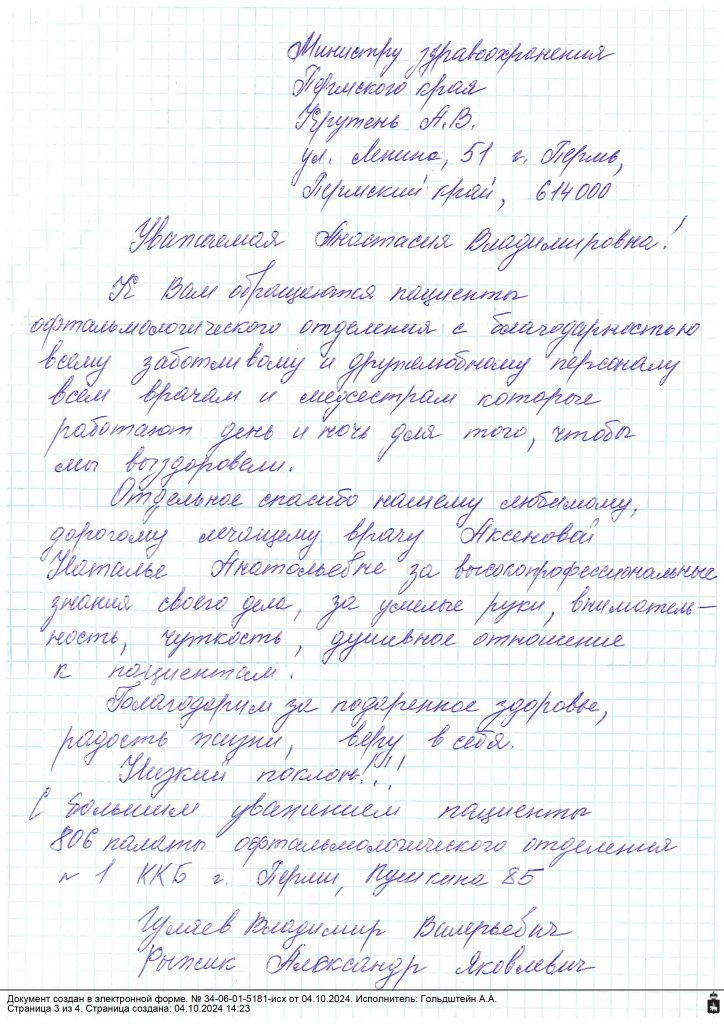 Министру здравоохранения
Пермского края
Крутень А.В.
ул. Ленина, 51 г. Пермь,
Пермский край, 614000
Уважаемая Анастасия Владимировна!
К Вам обращаются пациенты
офтальмологического отделения с благодарностью
всему заботливому и дружелюбному персоналу
всем врачам и медсестрам которые
работают день и ночь для того, чтобы
мы выздоровели.
Отдельное спасибо нашему любимому,
дорогому лечащему врачу Аксеновой
Наталье Анатольевне за высокопрофессиональные
знания своего дела, за умелые руки, вниматель-
ность, чуткость, душевное отношение
к пациентам.
Благодарим за подаренное здоровье,
радость жизни, веру в себя.
Низкий поклон!!!
С большим уважением пациенты
806 палаты офтальмологического отделения
№ 1 ККБ г. Перми, Пушкина 85
Гуляев Владимир Валерьевич
Рыжик Александр Яковлевич
Документ создан в электронной форме. № 34-06-01-5181-исх от 04.10.2024. Исполнитель: Гольдштейн А.А.
Страница 3 из 4. Страница создана: 04.10.2024 14:23